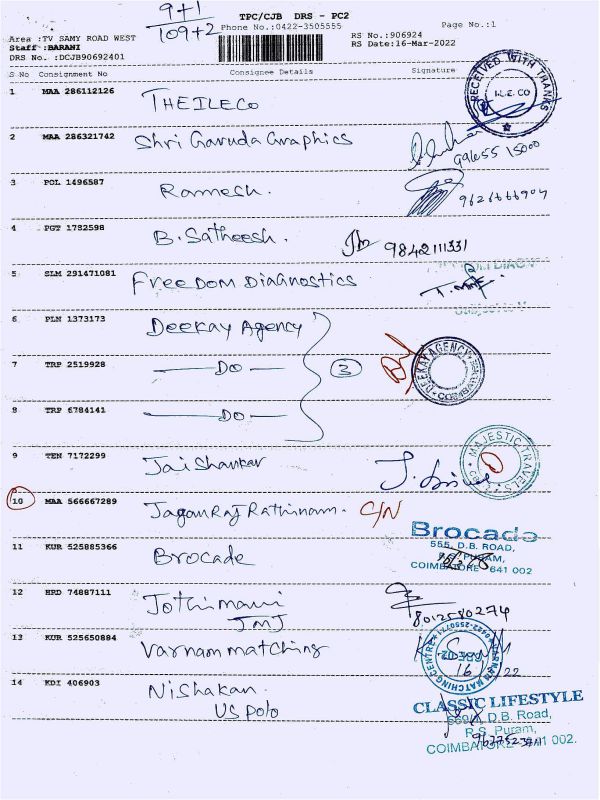 9+1
109+2
TPC/CJB DRS - PC2
Phone No.:0422-3505555
Page No.:1
Area :TV SAMY ROAD WEST
Staff :BARANI
DRS No. :DCJB90692401
RS No.:906924
RS Date:16-Mar-2022
S No Consignment No Consignee Details Signature
1 MAA 286112126 THEILECO
RECEIVED WITH THANKS
I.L.E. CO
2 MAA 286321742 Shri Garuda Graphics
99655 15000
3 POL 1496587 Ramesh.
9626666904
4 PGT 1732598 B. Satheesh. 9842111331
5 SLM 291471081 FREEDOM DIAGNOSTICS
6 PLN 1373173 DEEKAY Agency
7 TRP 2519928 DO 3
DEEKAY AGENCY
8 TRP 6784141 DO
9 TEN 7172299 Jai Shankar
MAJESTIC TRAVELS
10 MAA 566667289 Jagan Raj Rathinam. C/N
11 KUR 525885366 Brocade
Brocade
555, D.B. ROAD,
R.S. PURAM,
COIMBATORE - 641 002
12 HRD 74887111 Jothimani
JMJ
8012580274
13 KUR 525650884 Varnam matching
VARNAM MATCHING CENTRE
0422-2550771
14 KDI 406903 Nishakan.
US Polo
CLASSIC LIFESTYLE
D.B. Road,
R.S. Puram,
COIMBATORE - 641 002.